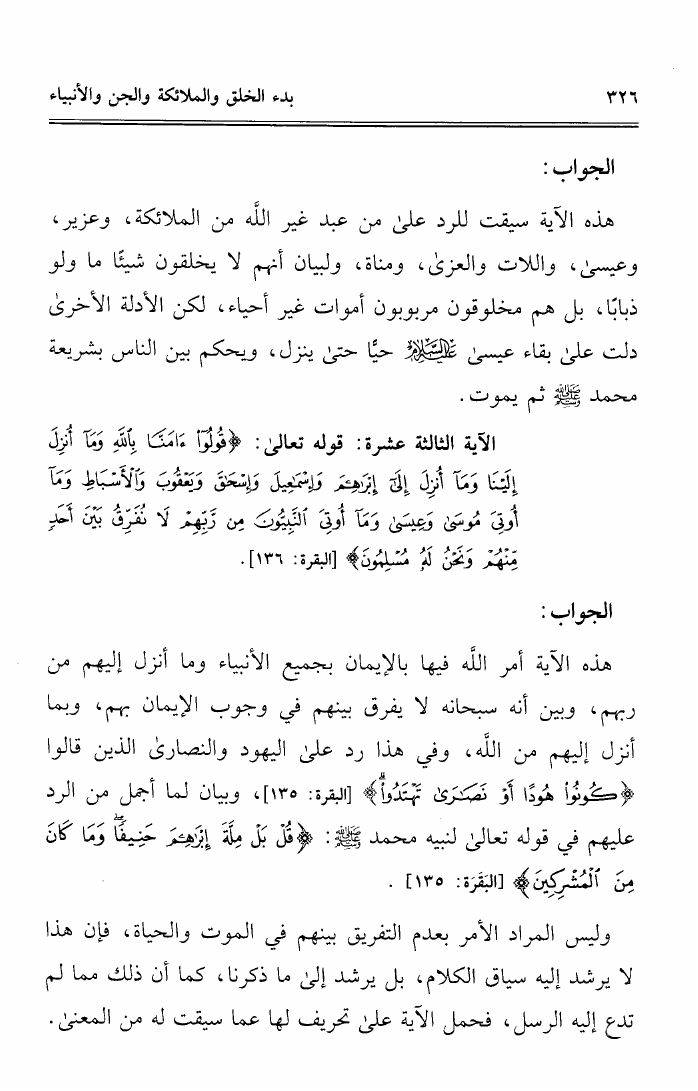 ٣٢٦ بدء الخلق والملائكة والجن والأنبياء
الجواب:
هذه الآية سيقت للرد علىٰ من عبد غير اللَّه من الملائكة، وعزير،
وعيسىٰ، واللات والعزىٰ، ومناة، ولبيان أنهم لا يخلقون شيئًا ما ولو
ذبابًا، بل هم مخلوقون مربوبون أموات غير أحياء، لكن الأدلة الأخرىٰ
دلت علىٰ بقاء عيسىٰ عَلَيْهِ السَّلَامُ حيًّا حتىٰ ينزل، ويحكم بين الناس بشريعة
محمد ﷺ ثم يموت.
الآية الثالثة عشرة: قوله تعالىٰ: ﴿قُولُوٓا۟ ءَامَنَّا بِٱللَّهِ وَمَآ أُنزِلَ
إِلَيْنَا وَمَآ أُنزِلَ إِلَىٰٓ إِبْرَٰهِـۧمَ وَإِسْمَٰعِيلَ وَإِسْحَٰقَ وَيَعْقُوبَ وَٱلْأَسْبَاطِ وَمَآ
أُوتِىَ مُوسَىٰ وَعِيسَىٰ وَمَآ أُوتِىَ ٱلنَّبِيُّونَ مِن رَّبِّهِمْ لَا نُفَرِّقُ بَيْنَ أَحَدٍ
مِّنْهُمْ وَنَحْنُ لَهُۥ مُسْلِمُونَ﴾ [البقرة: ١٣٦].
الجواب:
هذه الآية أمر اللَّه فيها بالإيمان بجميع الأنبياء وما أنزل إليهم من
ربهم، وبين أنه سبحانه لا يفرق بينهم في وجوب الإيمان بهم، وبما
أنزل إليهم من اللَّه، وفي هذا رد علىٰ اليهود والنصارىٰ الذين قالوا
﴿كُونُوا۟ هُودًا أَوْ نَصَٰرَىٰ تَهْتَدُوا۟ۗ﴾ [البقرة: ١٣٥]، وبيان لما أجمل من الرد
عليهم في قوله تعالىٰ لنبيه محمد ﷺ: ﴿قُلْ بَلْ مِلَّةَ إِبْرَٰهِـۧمَ حَنِيفًاۖ وَمَا كَانَ
مِنَ ٱلْمُشْرِكِينَ﴾ [البَقَرَة: ١٣٥] .
وليس المراد الأمر بعدم التفريق بينهم في الموت والحياة، فإن هذا
لا يرشد إليه سياق الكلام، بل يرشد إلىٰ ما ذكرنا، كما أن ذلك مما لم
تدع إليه الرسل، فحمل الآية علىٰ تحريف لها عما سيقت له من المعنىٰ.